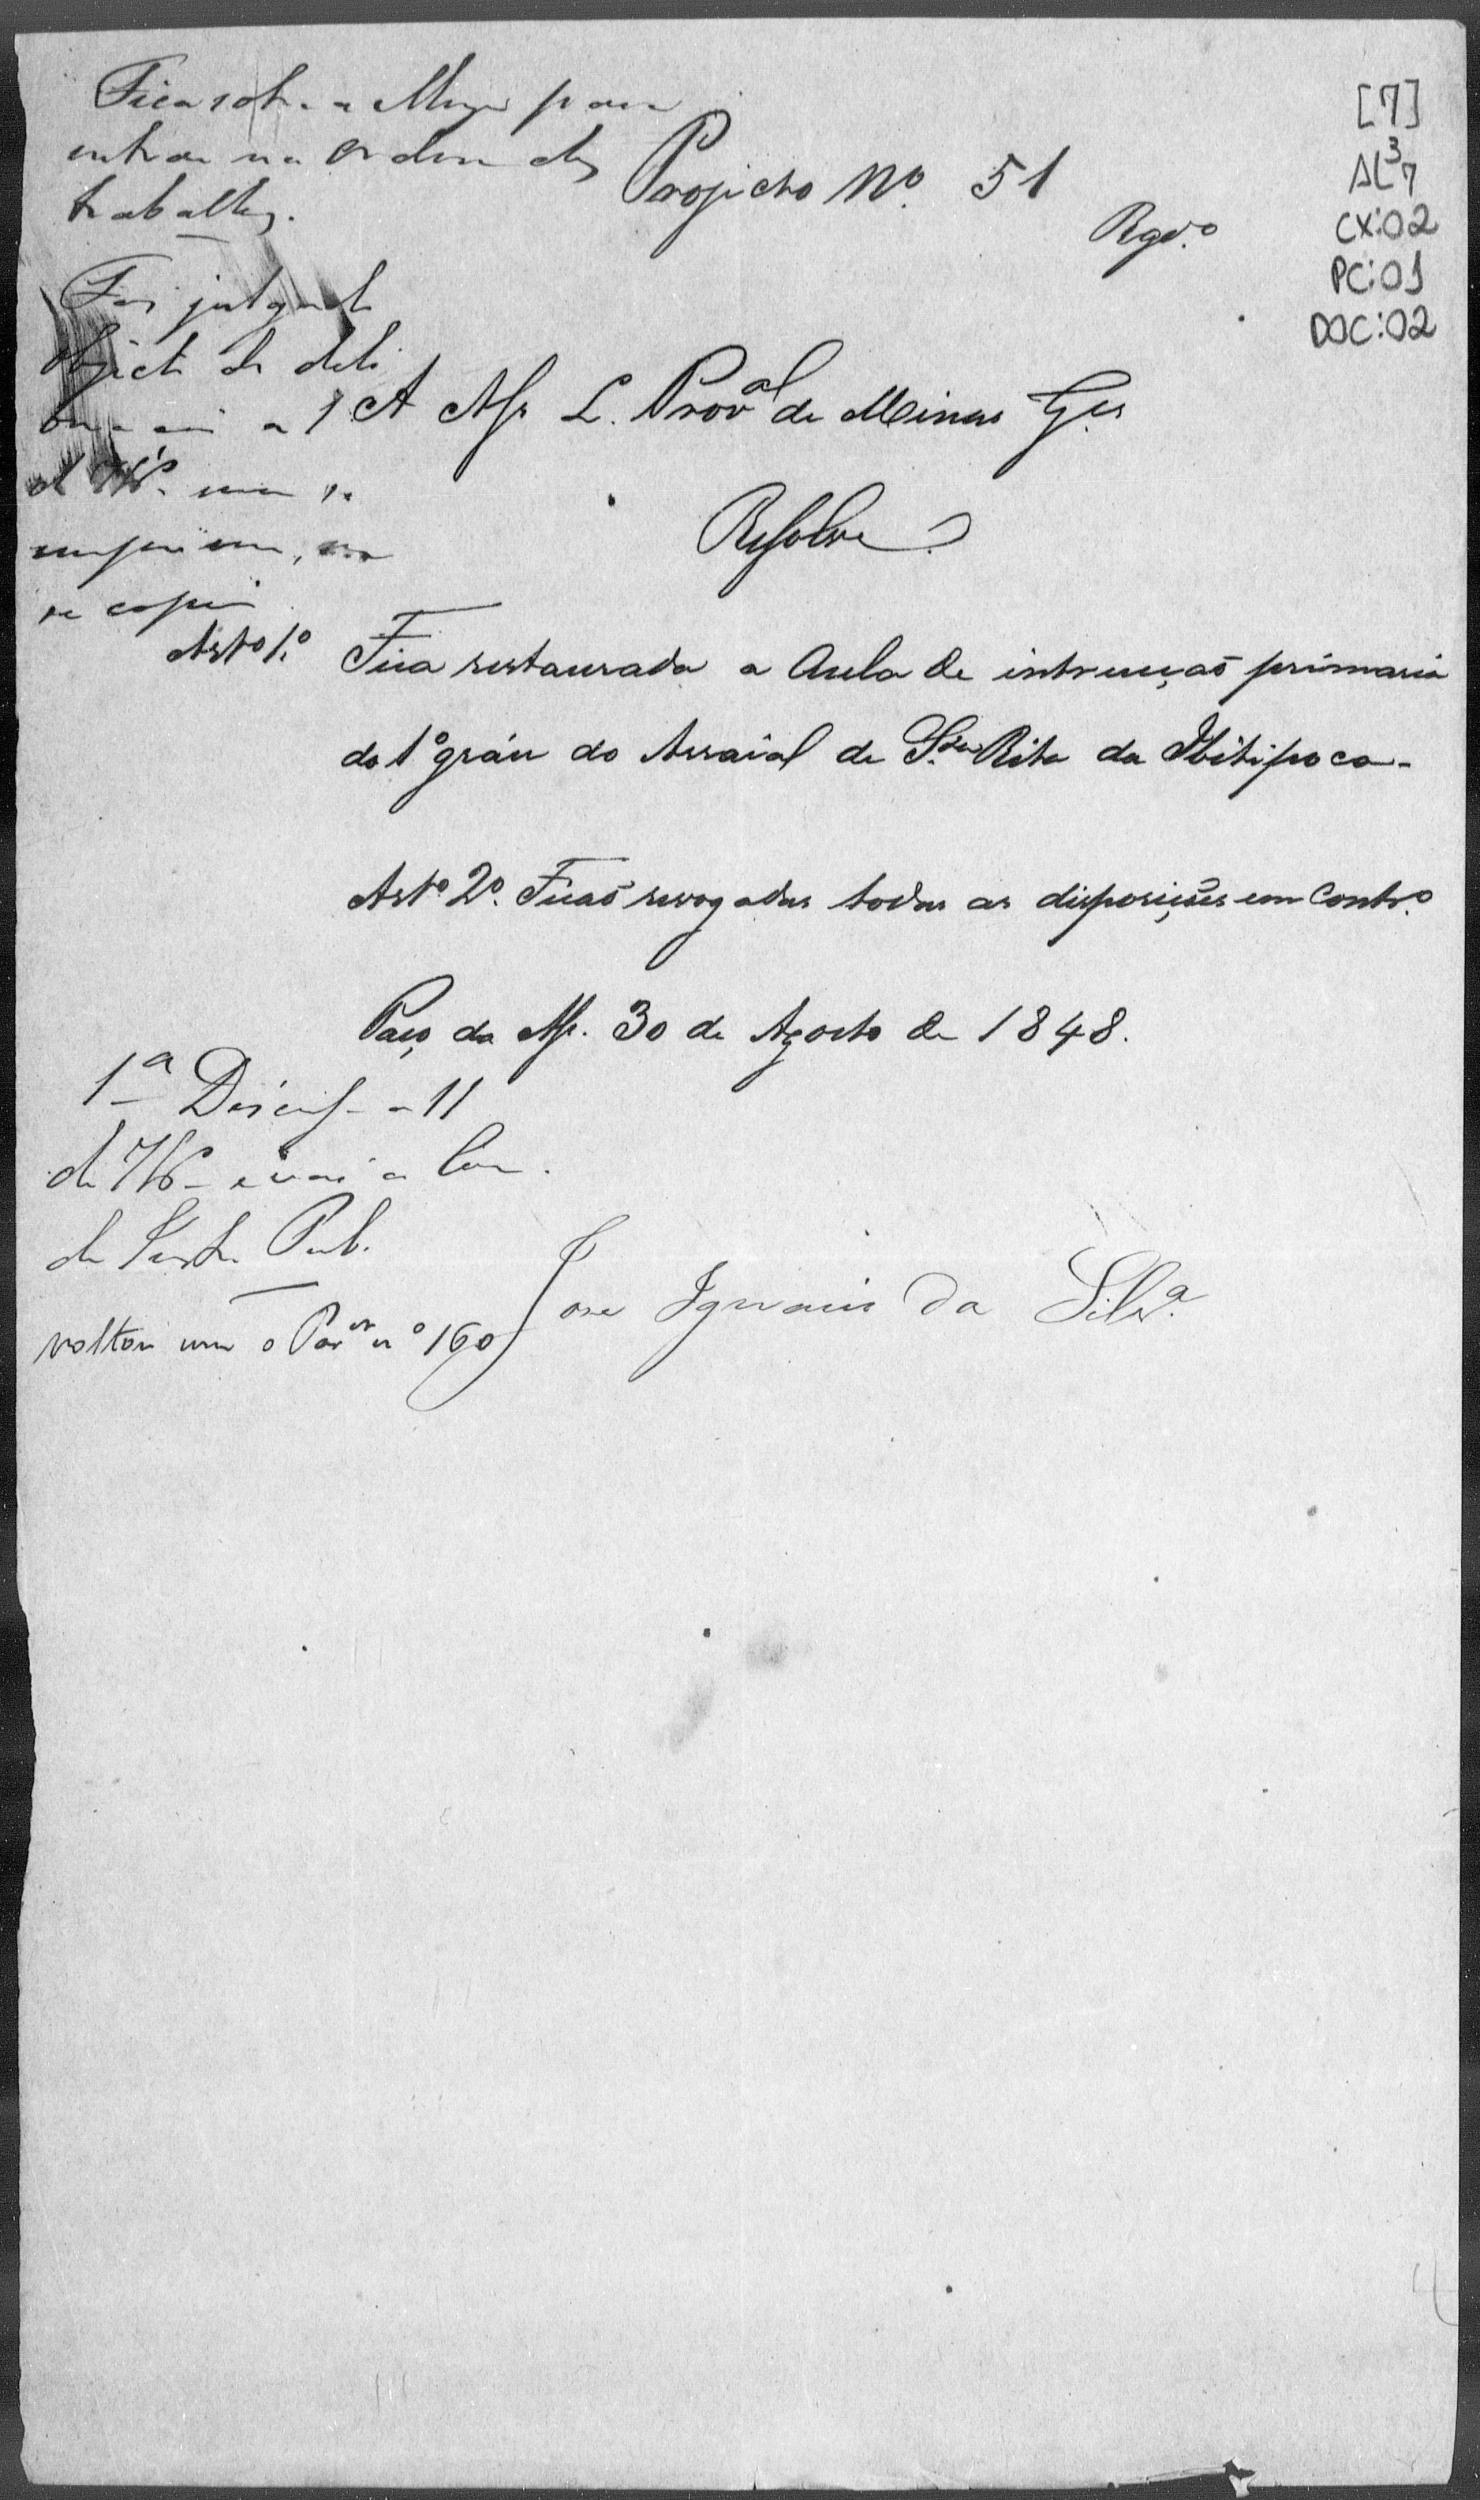 Fica sob a Mesa para
entrar na ordem dos
trabalhos.
Projecto Nº. 51
Rgdº.
[7]
AL³7
CX:02
PC:01
DOC:02
Foi julgado
objecto de deli
a 1
de 7bro.
se copie
A Ass. L. Proval de Minas Ges
Resolve
Artº 1º. Fica restaurada a Aula de intrucçaõ primaria
do 1º gráu do Arraial de Sta. Rita da Ibitipoca.
Artº 2º. Ficaõ revogadas todas as disposições em Contrº.
Paço da Ass. 30 de Agosto de 1848.
1ª Discuss. a 11
de 7bro e vai a Com.
de Inst. Pub.
voltou com o Parer nº 160
Jose Ignacio da Silvª.